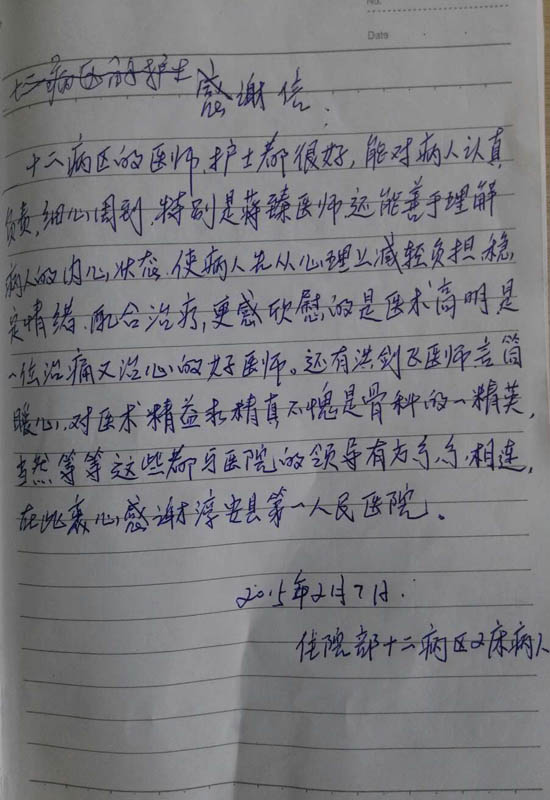 No.
Date
十二病区的护士 感谢信
十二病区的医师、护士都很好，能对病人认真
负责，细心周到，特别是蒋臻医师还能善于理解
病人的内心状态，使病人先从心理上减轻负担，稳
定情绪，配合治疗，更感欣慰的是医术高明是
一位治痛又治心的好医师。还有洪剑飞医师言简
暖心，对医术精益求精真不愧是骨科的一精英，
当然等等这些都与医院的领导有方息息相连，
在此衷心感谢淳安县第一人民医院。
2015年2月7日.
住院部十二病区2床病人